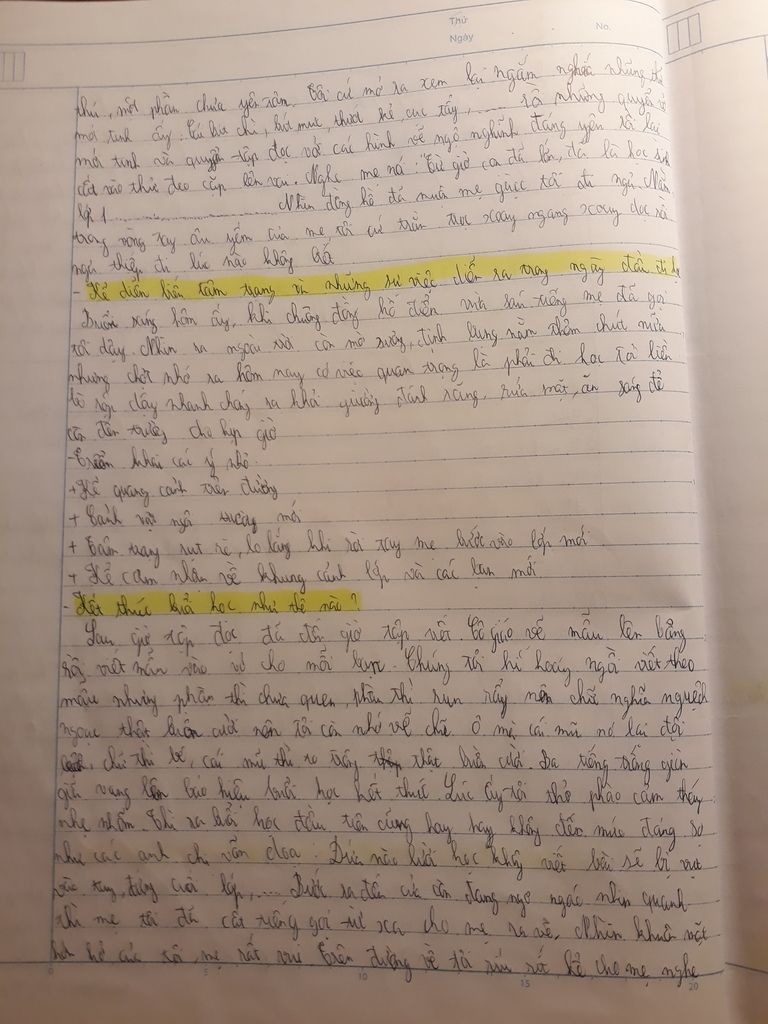 Thứ
Ngày
No.
thú, một phần chưa yên tâm. Tôi cứ mở ra xem lại ngắm nghía những thứ
mới tinh ấy. Cái bút chì, bút mực, thước kẻ, cục tẩy, ...... rồi những quyển vở
mới tinh và quyển tập đọc với các hình vẽ ngộ nghĩnh đáng yêu rồi lại
cất vào thử đeo cặp lên vai. Nghe mẹ nói: "Từ giờ con đã lớn, đã là học sinh
lớp 1 ........................ Nhìn đồng hồ đã muộn mẹ giục tôi đi ngủ. Nằm
trong vòng tay âu yếm của mẹ tôi cứ trằn trọc xoay ngang xoay dọc rồi
ngủ thiếp đi lúc nào không biết
- Kể diễn biến tâm trạng và những sự việc diễn ra trong ngày đầu đi học
Buổi sáng hôm ấy, khi chuông đồng hồ điểm vừa sáu tiếng mẹ đã gọi
tôi dậy. Nhìn ra ngoài trời còn mờ sương, định lung nằm thêm chút nữa
nhưng chợt nhớ ra hôm nay có việc quan trọng là phải đi học tôi liền
dậy nhanh chóng ra khỏi giường đánh răng, rửa mặt, ăn sáng để
còn đến trường cho kịp giờ
- Triển khai các ý nhỏ.
+ Kể quang cảnh trên đường
+ Cảnh vật ngôi trường mới
+ Tâm trạng rụt rè, lo lắng khi rời tay mẹ bước vào lớp mới
+ Kể cảm nhận về khung cảnh lớp và các bạn mới
- Kết thúc buổi học như thế nào?
Sau giờ tập đọc đã đến giờ tập viết. Cô giáo vẽ mẫu lên bảng
rồi viết mẫu vào vở cho mỗi bạn. Chúng tôi hí hoáy ngồi viết theo
mẫu nhưng phần thì chưa quen, phần thì run rẩy nên chữ nghĩa nguệch
ngoạc thật buồn cười nên tôi còn nhớ về chữ ô mà cái mũ nó lại đội
chữ thì bé, cái mũ thì to trông thật buồn cười. Ba tiếng trống giòn
giã vang lên báo hiệu buổi học kết thúc. Lúc ấy tôi thở phào cảm thấy
nhẹ nhõm. Thì ra buổi học đầu tiên cũng hay hay không đến mức đáng sợ
như các anh chị vẫn dọa: Đứa nào lười học không viết bài sẽ bị vụt
vào tay, đứng cuối lớp, .... Bước ra đến cửa còn đang ngơ ngác nhìn quanh
thì mẹ tôi đã cất tiếng gọi từ xa cho mẹ ra về. Nhìn khuôn mặt
hớn hở của tôi, mẹ rất vui. Trên đường về tôi ríu rít kể cho mẹ nghe
0 5 10 15 20